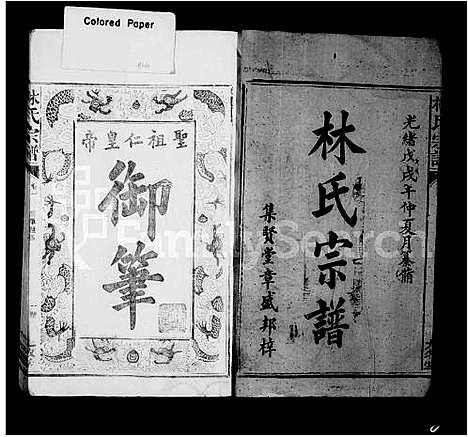 Colored Paper
光緒戊戌年仲夏月奉脩
林氏宗譜
集賢堂章盛邦梓
聖祖仁皇帝
御筆
林氏宗譜
FamilySearch